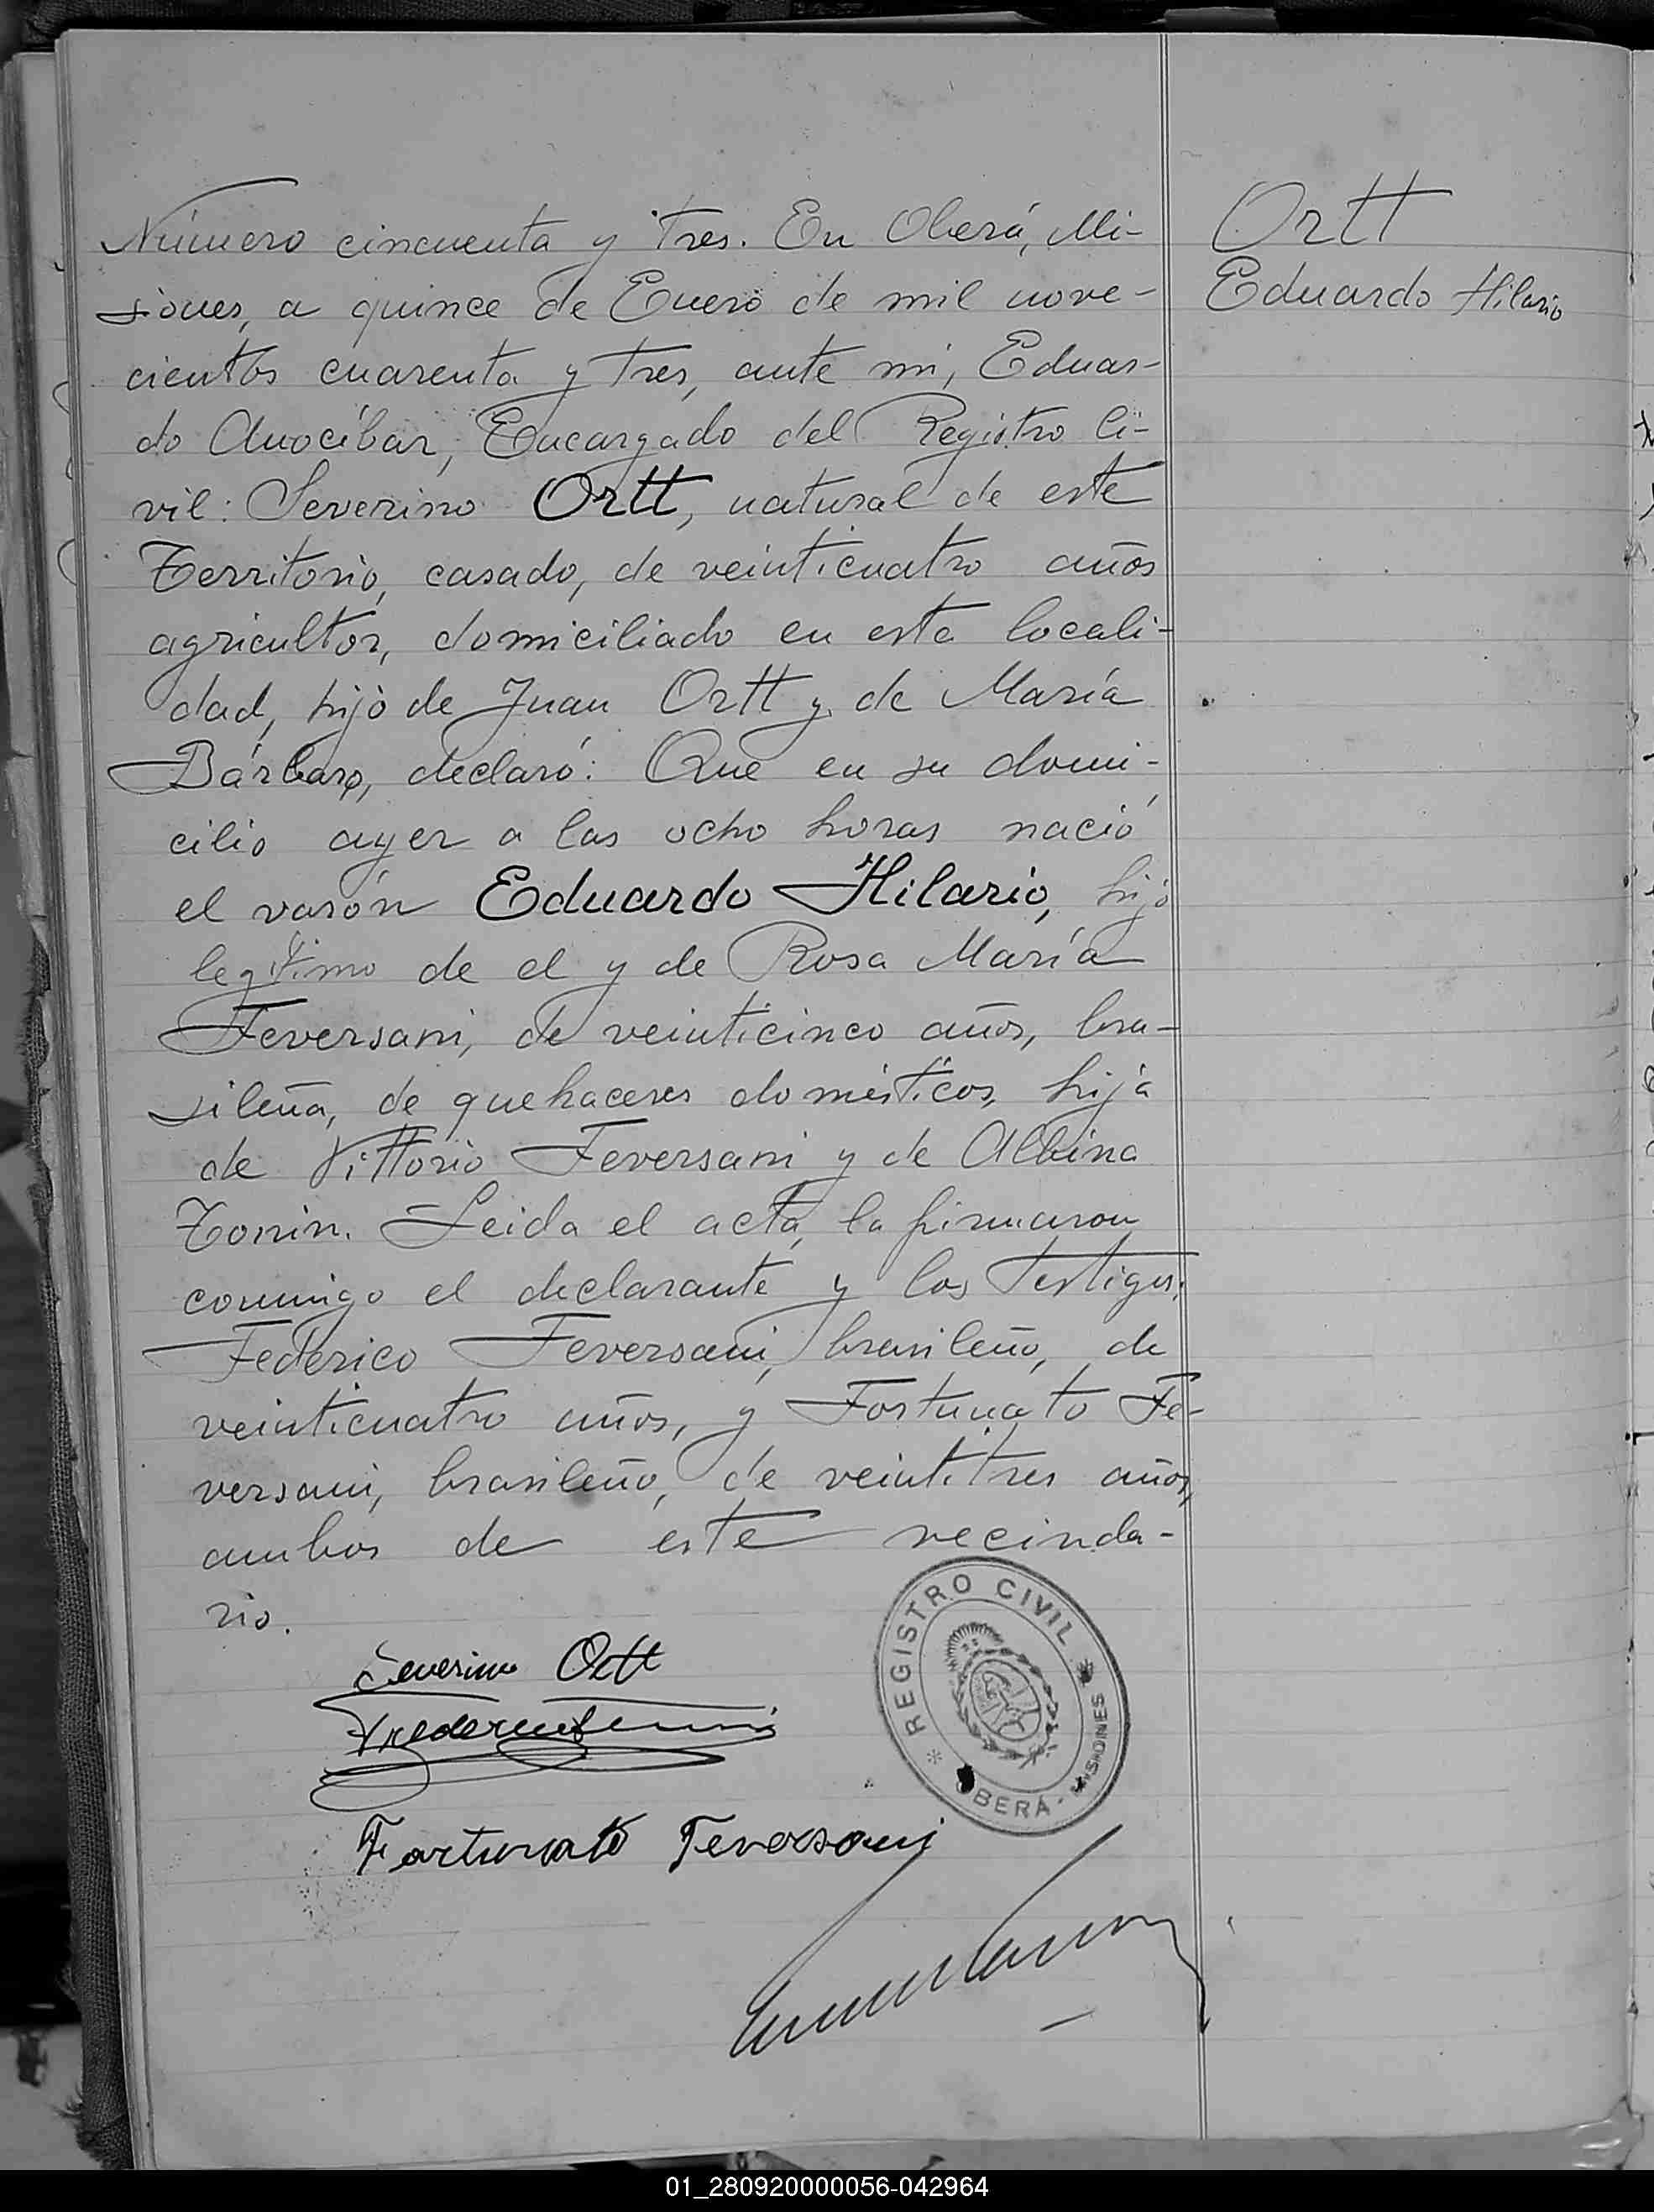 Número cincuenta y tres. En Oberá, Mi-
siones, a quince de Enero de mil nove-
cientos cuarenta y tres, ante mi, Eduar-
do Anocíbar, Encargado del Registro Ci-
vil: Severino Ortt, natural de este
Territorio, casado, de veinticuatro años
agricultor, domiciliado en esta locali-
dad, hijo de Juan Ortt y de María
Bárbaro, declaró: Que en su domi-
cilio ayer a las ocho horas nació
el varón Eduardo Hilario, hijo
legítimo de el y de Rosa María
Feversani, de veinticinco años, bra-
sileña, de quehaceres domésticos, hija
de Vittorio Feversani y de Albina
Tonin. Leida el acta, la firmaron
conmigo el declarante y los testigos:
Federico Feversani, brasileño, de
veinticuatro años, y Fortunato Fe-
versani, brasileño, de veintitres años,
ambos de este vecinda-
rio.
Ortt
Eduardo Hilario
Severino Ortt
Fortunato Feversani
REGISTRO CIVIL
OBERÁ - MISIONES
01_280920000056-042964